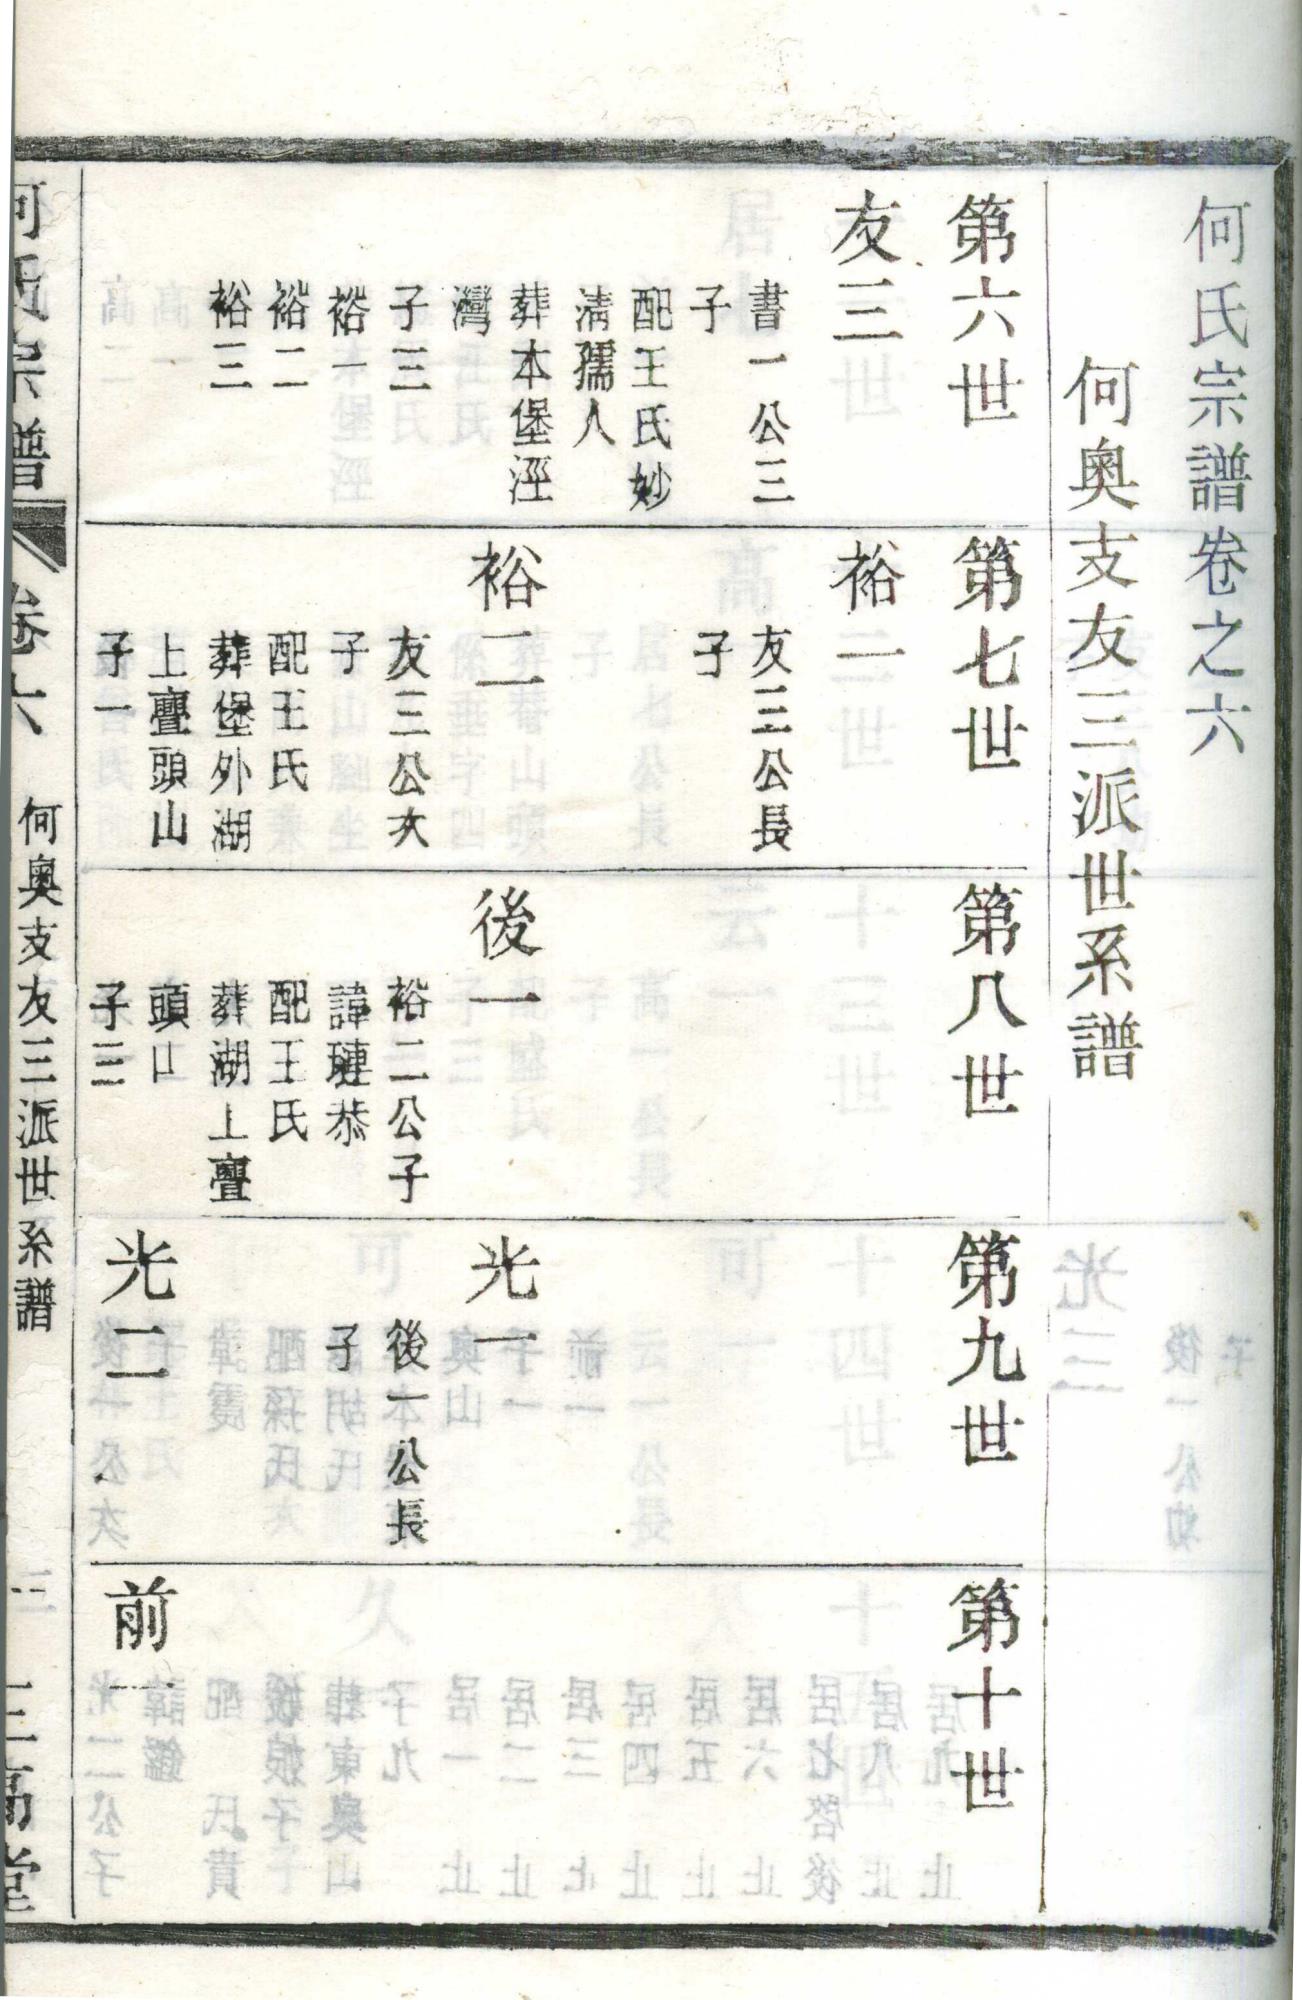 何氏宗譜卷之六
何奧支友三派世系譜
第六世
友三
書一公三
子
配王氏妙
淸孺人
葬本堡涇
灣
子三
裕一
裕二
裕三
第七世
裕一
友三公長
子
裕二
友三公次
子
配王氏
葬堡外湖
上亹頭山
子一
第八世
後一
裕二公子
諱璉恭
配王氏
葬湖上亹
頭山
子三
第九世
光一
後一公長
子
光二
第十世
前一
何氏宗譜
卷六
何奧支友三派世系譜
三高堂